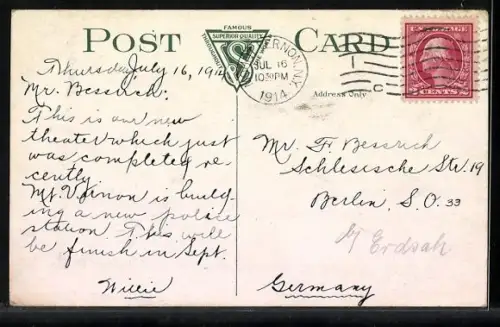 POST CARD
FAMOUS
SUPERIOR QUALITY
THROUGHOUT
MT. VERNON, N.Y.
JUL 16
1030PM
1914
C
U.S. POSTAGE
2 CENTS 2
Address Only
Thursday July 16, 1914
Mr. Bessrich:
This is our new
theater which just
was completed re-
cently.
Mt. Vernon is build-
ing a new police
station. This will
be finish in Sept.
Willie
Mr. F. Bessrich
Schlesische Str. 19
Berlin, S.O. 33
Germany